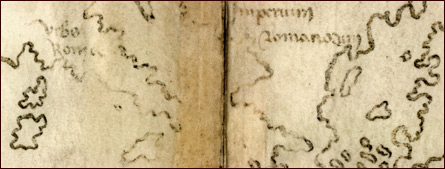 Vrbs
Roma
Imperium
Romanorum